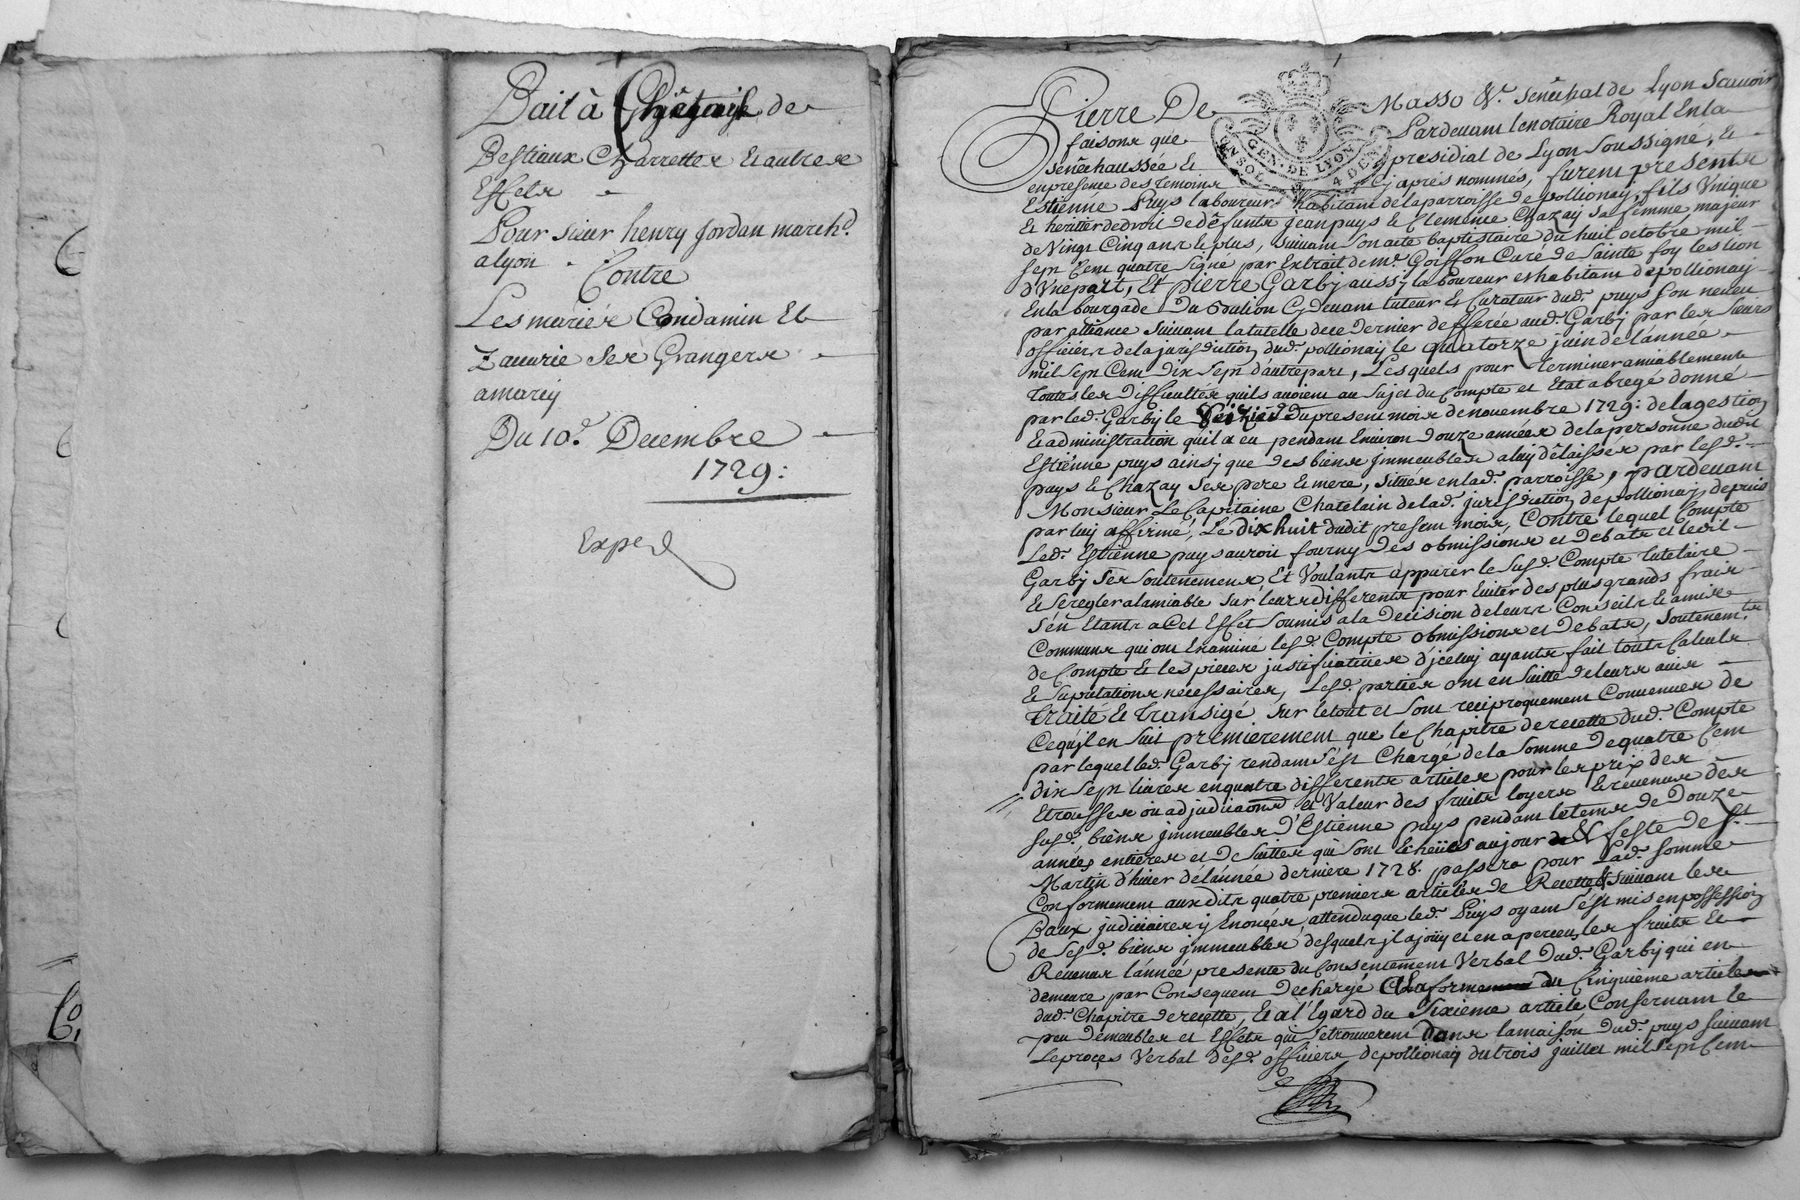 Bail à Chaptail de
Bestiaux Charrettes Et autres
Effets
Pour sieur henry Jordan march.d
a lyon
Contre
Les mariés Condamin Et
Zacarie Ses Grangers
a marcy
Du 10.e Decembre
1729 :
Exped
Pierre De Masso &r. Senéchal de Lyon Scavoir
faisons que Pardevant le notaire Royal En la
Senéchaussée & presidial de Lyon Soussigné, &
en presence des temoins cy apres nommés, furent presents
Estienne Puys laboureur habitant de la parroisse de pollionay, fils Unique
& heritier de droit de défunts Jean puys & Clemence Chazay sa femme majeur
de Vingt Cinq ans & plus, Suivant Son acte baptistaire du huit octobre mil
Sept Cent quatre Signé par Extrait de mr. Goiffon Curé de Sainte foy les lion
d'Une part, Et Pierre Garby aussy laboureur & habitant de pollionay
En la bourgade Du Cy devant tuteur & Curateur dud. puys Son neveu
par alliance Suivant la tutelle de ce Dernier defferée aud. Garby par les Sieurs
officiers de la jurisdiction dud. pollionay le quatorze juin de l'année
mil Sept Cent Dix Sept d'autre part, Lesquels pour terminer amiablement
toutes les Difficultés quils avoient au Sujet du Compte et Etat abregé donné
par led. Garby le du present mois de novembre 1729 : de la gestion
& administration quil a eu pendant Environ douze années de la personne dudit
Estienne puys ainsy que des biens jmmeubles a luy délaissés par lesd.
puys & Chazay Ses pere & mere, situés en lad. parroisse, pardevant
Monsieur Le Capitaine Chatelain de lad. jurisdiction de pollionay, depuis
par luy affirmé, Le dix huit dudit present mois, Contre lequel Compte
Led. Estienne puys auroit fourny Des obmissions et Debats et ledit
Garby Ses Soutenements Et Voulants appurer le Susd. Compte tutelaire
& Se regler a lamiable Sur leurs differents pour Eviter des plus grands frais
S'en Etants a Cet Effet Soumis a la Decision de leurs Conseils & amis
Communs qui ont Examiné lesd. Compte obmissions et Debats, Soutenem.ts
de Compte & les pieces justificatives d'jceluy ayants fait touts Calculs
& Suputations necessaires, Lesd. parties ont en Suitte de leurs avis
traité & transigé Sur le tout et Sont reciproquement Convenues de
Ce quil en Suit premierement que le Chapitre de recette dud. Compte
par lequel led. Garby rendant S'est Chargé de la Somme de quatre Cent
dix Sept livres en quatre differents articles pour les prix des
Etrousses ou adjudications et Valeur des fruits loyers & revenus des
Susd. biens jmmeubles D'Estienne puys pendant le tems de Douze
années entieres et De Suittes qui Sont Echeües au jour & feste de St.
Martin d'hiver de lannée derniere 1728. passera pour Lad. Somme
Conformement auxdits quatre premiers articles de Recette Suivant les
Baux judiciaires y Enoncés, attendu que led. Puys oyant S'est mis en possession
de Sesd. biens jmmeubles, desquels jl a joüy et en a perceu les fruits Et
Revenus l'année presente du Consentement Verbal Dud. Garby qui en
demeure par Consequent dechargé du Cinquieme article
dud. Chapitre de recette, Et a l'Egard du Sixieme article Concernant le
peu de meubles et Effets qui Se trouverent Dans la maison dud. puys Suivant
Le procès Verbal desd. officiers de pollionay du trois juillet mil Sept Cent